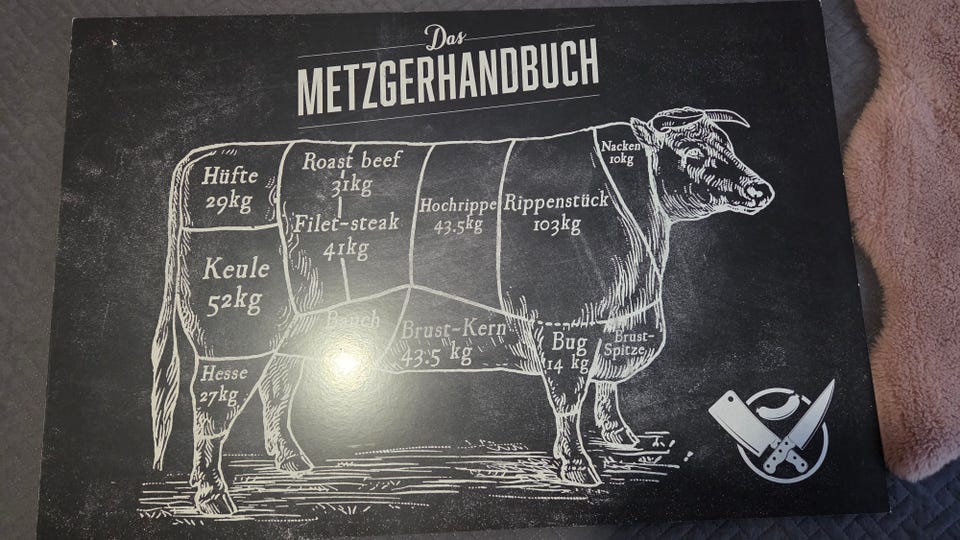 Das
METZGERHANDBUCH
Hüfte
29kg
Roast beef
31kg
Filet-steak
41kg
Hochrippe
43.5kg
Rippenstück
103kg
Nacken
10kg
Keule
52kg
Bauch
Brust-Kern
43.5 kg
Bug
14 kg
Brust-
Spitze
Hesse
27kg